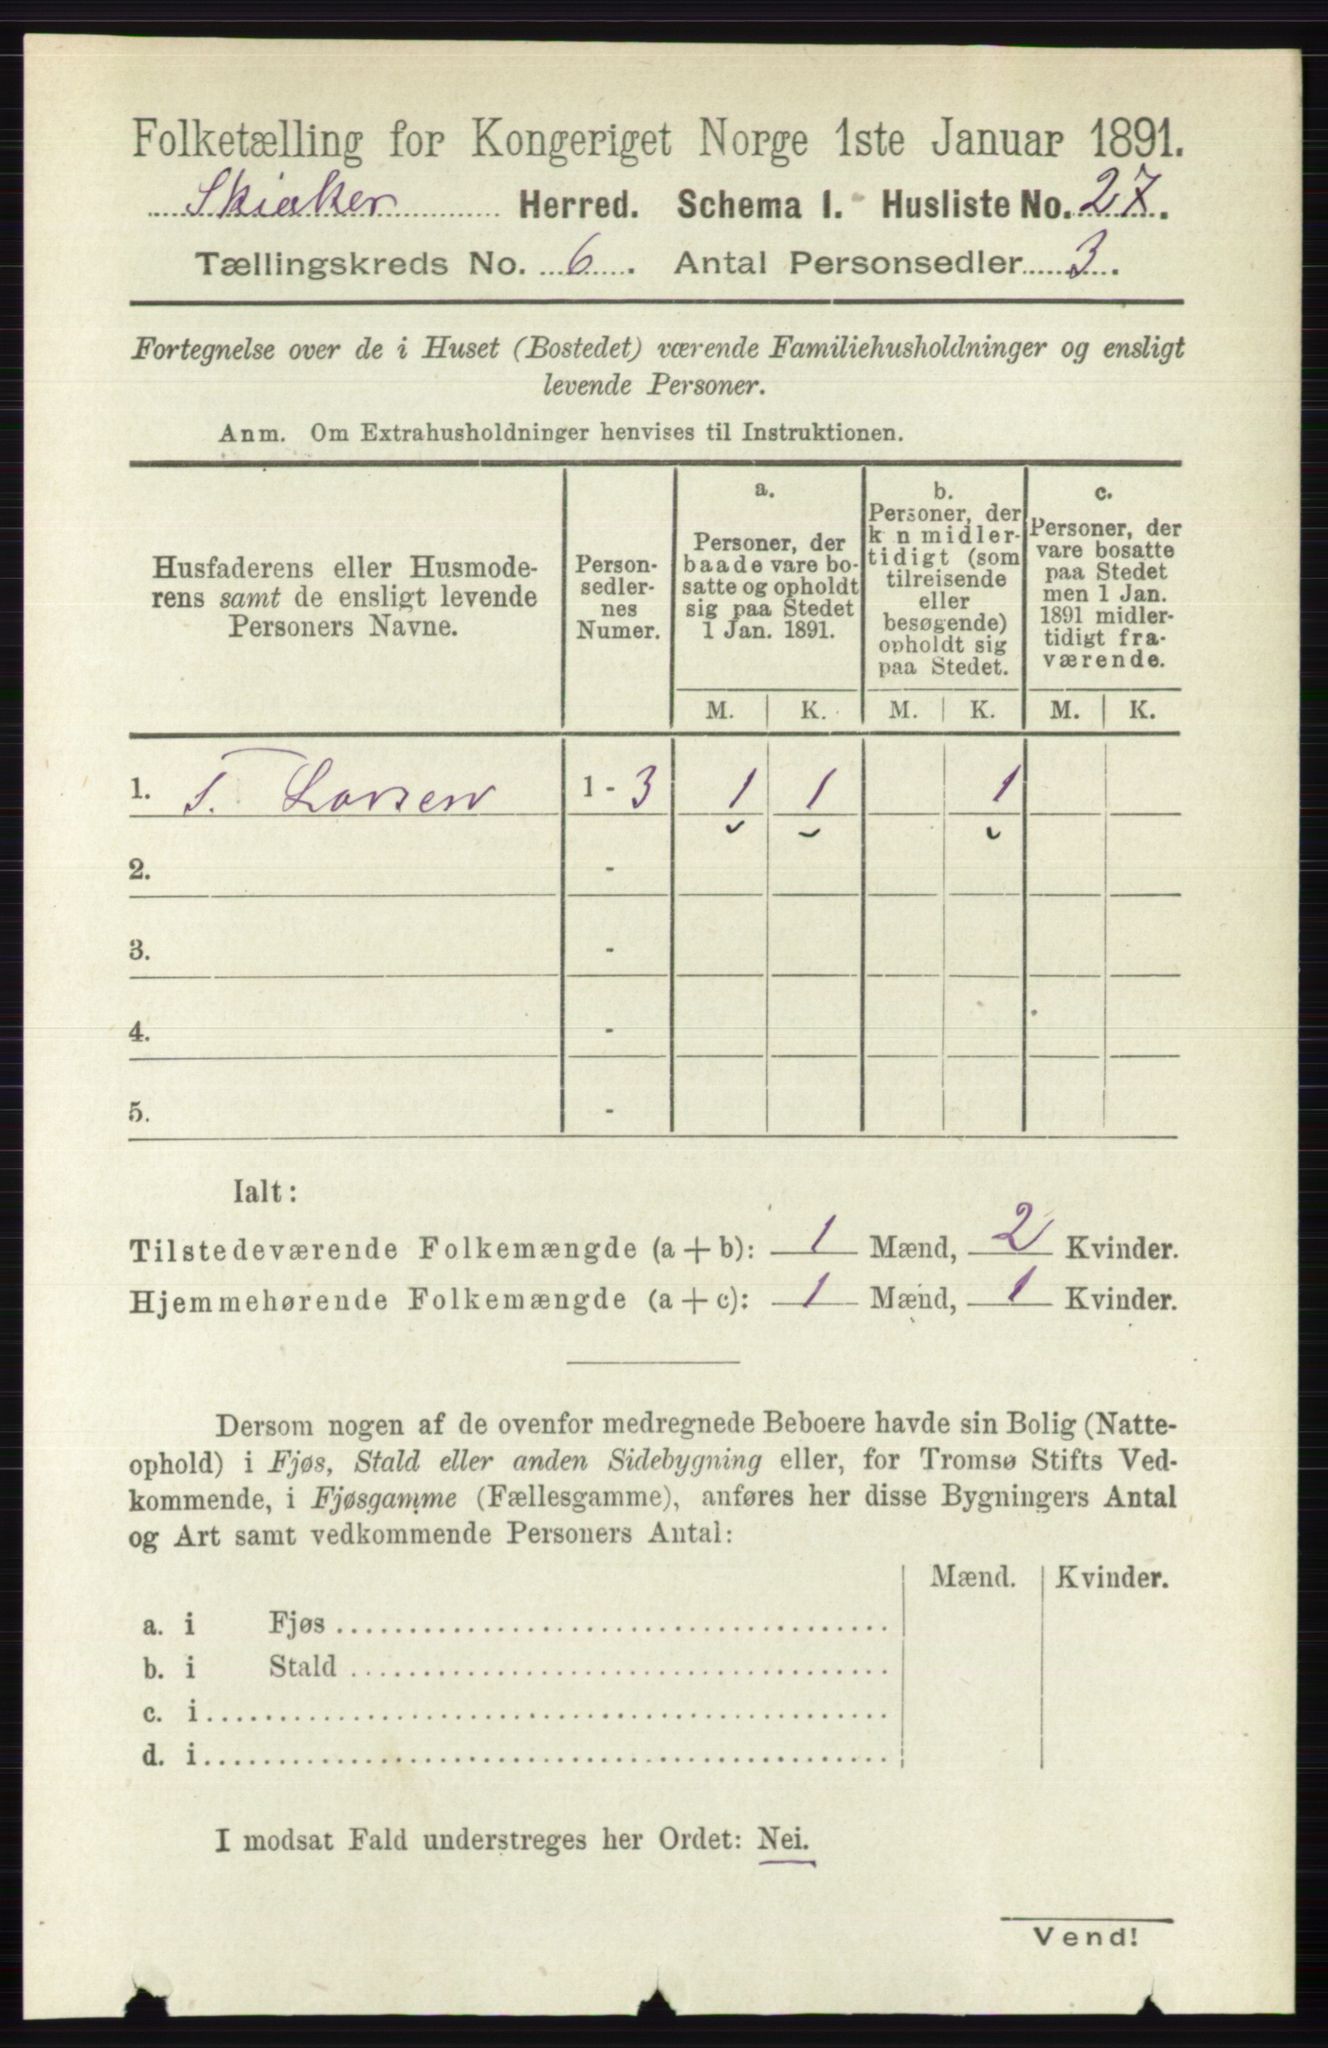 Folketælling for Kongeriget Norge 1ste Januar 1891.
Skiaker Herred. Schema I. Husliste No. 27.
Tællingskreds No. 6. Antal Personsedler 3.
Fortegnelse over de i Huset (Bostedet) værende Familiehusholdninger og ensligt
levende Personer.
Anm. Om Extrahusholdninger henvises til Instruktionen.
Husfaderens eller Husmode-
rens samt de ensligt levende
Personers Navne.
Person-
sedler-
nes
Numer.
a.
Personer, der
baade vare bo-
satte og opholdt
sig paa Stedet
1 Jan. 1891.
b.
Personer, der
k n midler-
tidigt (som
tilreisende
eller
besøgende)
opholdt sig
paa Stedet.
c.
Personer, der
vare bosatte
paa Stedet
men 1 Jan.
1891 midler-
tidigt fra-
værende.
M. K. M. K. M. K.
1. T. Larsen 1 - 3 1 1 1
2. -
3. -
4. -
5. -
Ialt:
Tilstedeværende Folkemængde (a + b): 1 Mænd, 2 Kvinder.
Hjemmehørende Folkemængde (a + c): 1 Mænd, 1 Kvinder.
Dersom nogen af de ovenfor medregnede Beboere havde sin Bolig (Natte-
ophold) i Fjøs, Stald eller anden Sidebygning eller, for Tromsø Stifts Ved-
kommende, i Fjøsgamme (Fællesgamme), anføres her disse Bygningers Antal
og Art samt vedkommende Personers Antal:
Mænd. Kvinder.
a. i Fjøs
b. i Stald
c. i
d. i
I modsat Fald understreges her Ordet: Nei.
Vend!